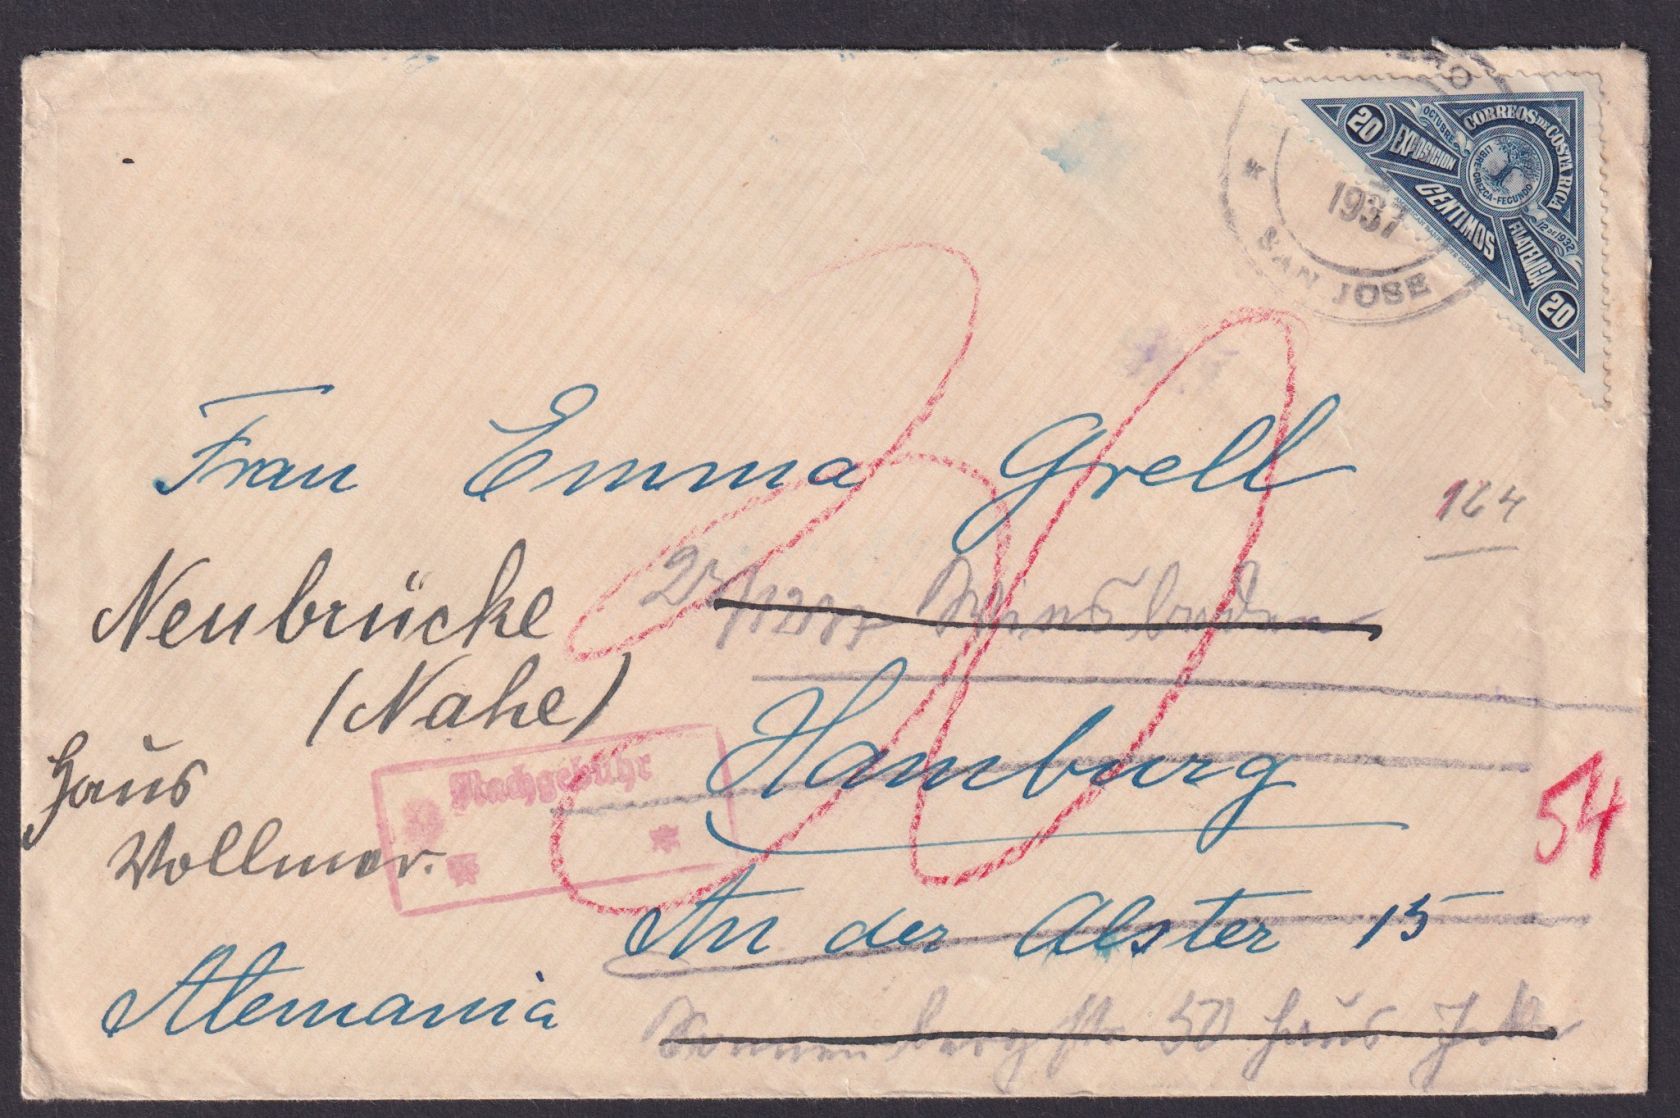 CORREOS DE COSTA RICA
20 EXPOSICION OCTUBRE
LIBRE-CREZCA-FECUNDO
CENTIMOS
12 DE 1932
FILATELICA
20
1937
SAN JOSE
Frau Emma Grell
124
Neubrücke
Wiesbaden
(Nahe)
Hamburg
Haus
Nachgebühr
Vollmer.
30
54
An der Alster 15
Alemania
Sonnenberg str. 50 Haus